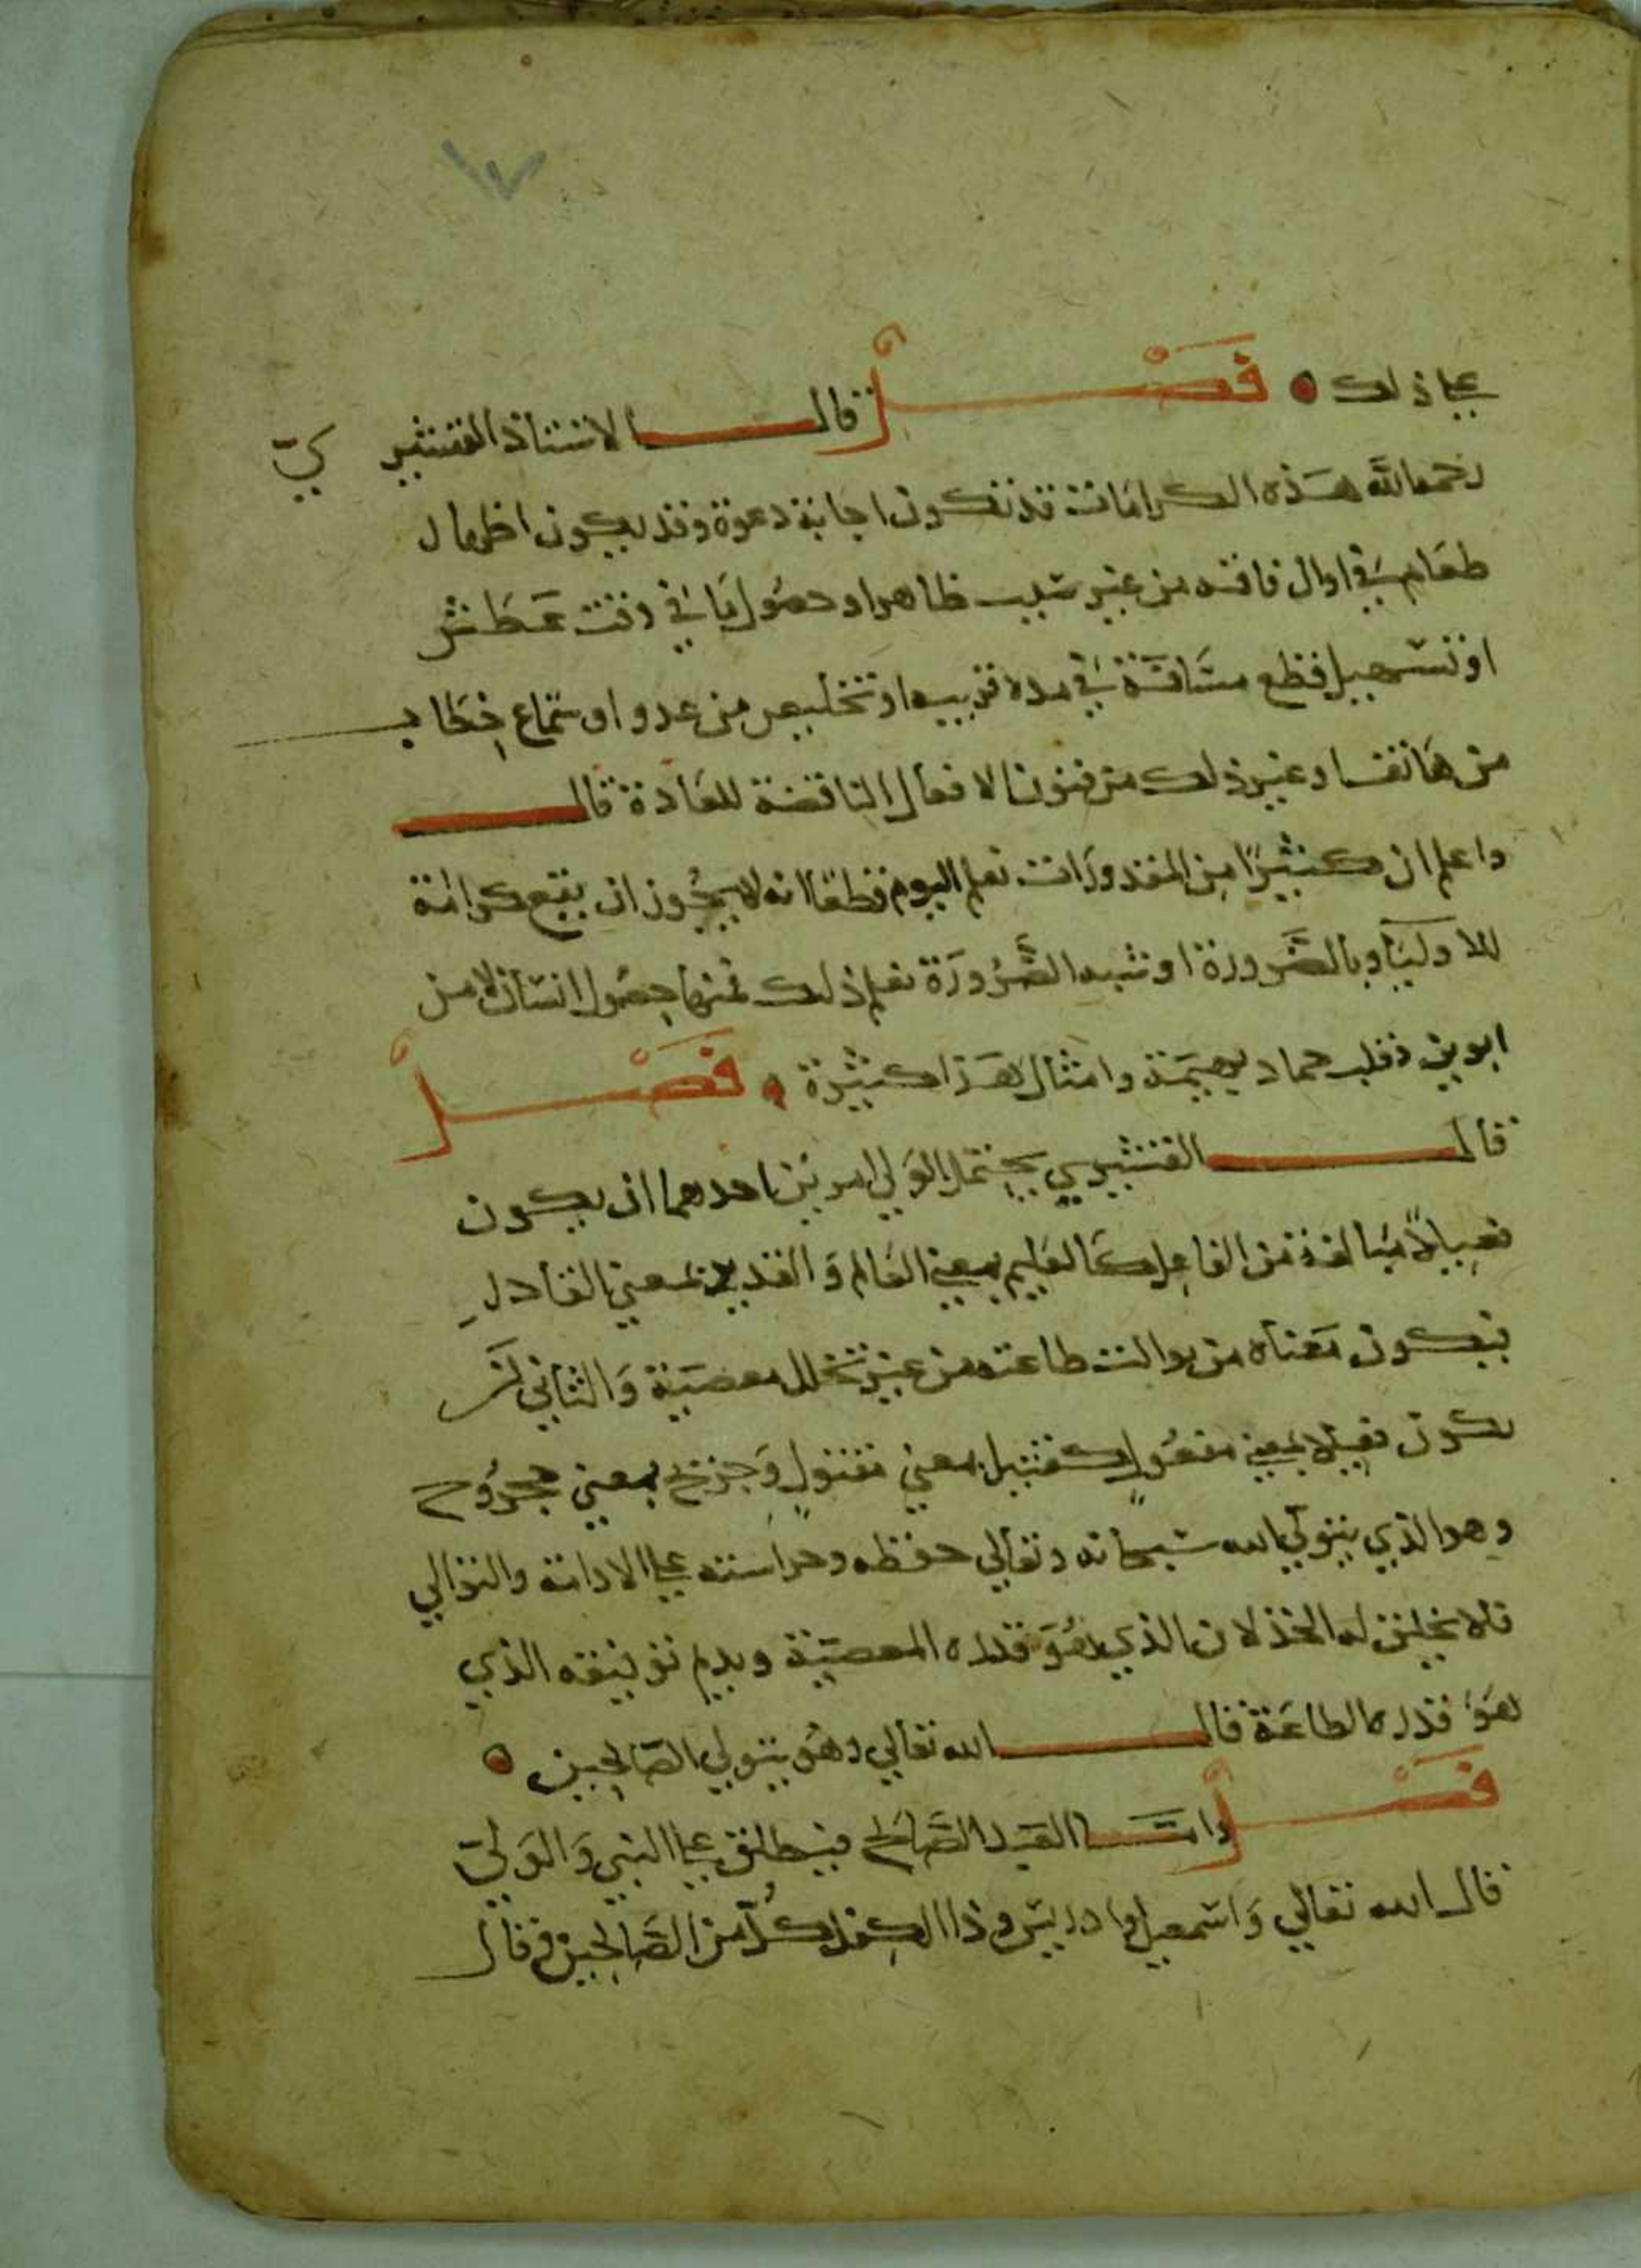 ١٧
علي ذلك فصل قال الاستاذ القشيري
رحمه الله هذه الكرامات قد تكون اجابة دعوة وقد يكون اظهار
طعام في اوان فاقه من غير سبب ظاهر او حصول ماء في وقت عطش
او تسهيل قطع مسافة في مده قريبه او تخليص من عدو او سماع خطاب
من هاتف او غير ذلك من فنون الافعال الناقضة للعادة قال
واعلم ان كثيرًا من المقدورات نعلم اليوم قطعا انه لا يجوز ان يقع كرامة
للاولياء وبالضرورة او شبه الضرورة نعلم ذلك فمنها حصول انسان لا من
ابوين وقلب جماد بهيمة وامثال هذا كثيرة فصل
قال القشيري يحتمل الولي امرين احدهما ان يكون
فعيلاً مبالغة من الفاعل كالعليم بمعني العالم والقدير بمعني القادر
فيكون معناه من توالت طاعته من غير تخلل معصية والثاني ان
يكون فعيلا بمعني مفعول كقتيل بمعني مقتول وجريح بمعني مجروح
وهو الذي يتولي الله سبحانه وتعالي حفظه وحراسته علي الادامة والتوالي
فلا يخلق له الخذلان الذي هو قدره المعصية ويديم توفيقه الذي
هو قدره الطاعة قال الله تعالي وهو يتولي الصالحين
فصل واما العبد الصالح فيطلق علي النبي والولي
قال الله تعالي واسمعيل وادريس وذا الكفل كل من الصابرين وقال